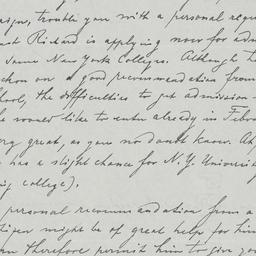 again, trouble you with a personal requ
Richard is applying now for adm
Some New York Colleges. Although h
on a good recommendation from
ool, the difficulties to get admission
would like to enter already in Febr
great, as you no doubt know. At
has a slight chance for N.Y. Universit
ing college).
personal recommendation from a
tizen might be of great help for him
therefore permit him to give you